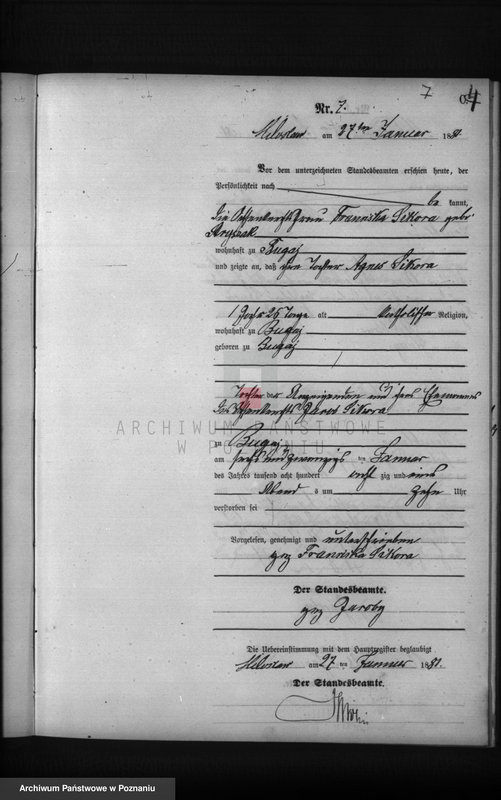 7
Nr. 7.
Miloslaw am 27ten Januar 1881
Vor dem unterzeichneten Standesbeamten erschien heute, der
Persönlichkeit nach
be kannt,
die Frau Franziska Sikora geb.
wohnhaft zu Bugaj
und zeigte an, daß ihre Tochter Agnes Sikora
1 Jahr 26 Tage alt katholischer Religion,
wohnhaft zu Bugaj
geboren zu Bugaj
Tochter der Anzeigenden und ihres Ehemannes
des Sikora
ARCHIWUM PAŃSTWOWE
W POZNANIU
zu Bugaj
am sechs und zwanzigs ten Januar
des Jahres tausend acht hundert acht zig und eins
Abend s um zehn Uhr
verstorben sei
Vorgelesen, genehmigt und unterschrieben
gez Franziska Sikora
Der Standesbeamte.
gez
Die Uebereinstimmung mit dem Hauptregister beglaubigt
Miloslaw am 27 ten Januar 1881.
Der Standesbeamte.
Archiwum Państwowe w Poznaniu
Archiwum Państwowe w Poznaniu